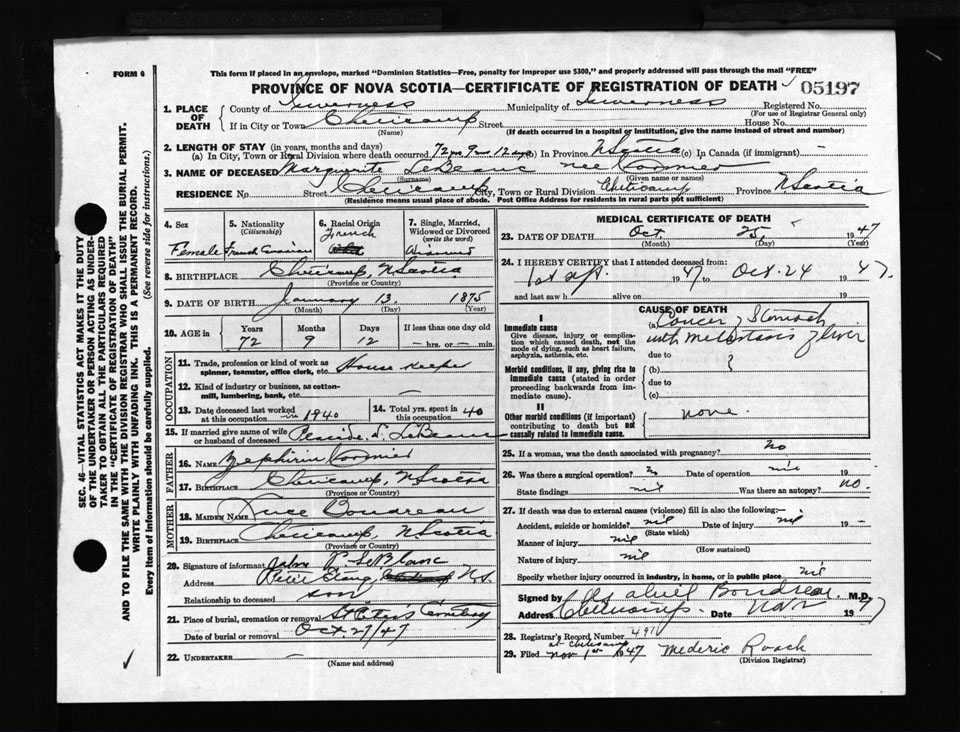 FORM 6
This form if placed in an envelope, marked "Dominion Statistics—Free, penalty for improper use $300," and properly addressed will pass through the mail "FREE"
PROVINCE OF NOVA SCOTIA—CERTIFICATE OF REGISTRATION OF DEATH 05197
1. PLACE OF DEATH
County of Inverness Municipality of Inverness Registered No.
(For use of Registrar General only)
If in City or Town Cheticamp Street House No.
(Name) (If death occurred in a hospital or institution, give the name instead of street and number)
2. LENGTH OF STAY (in years, months and days)
(a) In City, Town or Rural Division where death occurred 72 yrs 9 mo 12 days (b) In Province N Scotia (c) In Canada (if immigrant) —
3. NAME OF DECEASED Marguerite LeBlanc nee Cormier
(Surname) (Given name or names)
RESIDENCE No. Street Cheticamp City, Town or Rural Division Cheticamp Province N Scotia
(Residence means usual place of abode. Post Office Address for residents in rural parts not sufficient)
4. Sex
Female
5. Nationality
(Citizenship)
French Canadian
6. Racial Origin
French
7. Single, Married, Widowed or Divorced
(write the word)
Widowed
8. BIRTHPLACE Cheticamp, N Scotia
(Province or Country)
9. DATE OF BIRTH January 13. 1875
(Month) (Day) (Year)
10. AGE in
Years Months Days If less than one day old
72 9 12 — hrs. or — min.
OCCUPATION
11. Trade, profession or kind of work as spinner, teamster, office clerk, etc. House Keeper
12. Kind of industry or business, as cotton-mill, lumbering, bank, etc. —
13. Date deceased last worked at this occupation in 1940
14. Total yrs. spent in this occupation 40
15. If married give name of wife or husband of deceased Placide S. LeBlanc
FATHER
16. NAME Zephirin Cormier
17. BIRTHPLACE Cheticamp, N Scotia
(Province or Country)
MOTHER
18. MAIDEN NAME Luce Boudreau
19. BIRTHPLACE Cheticamp, N Scotia
(Province or Country)
20. Signature of informant John P. LeBlanc
Address Petit Etang, N.S.
Relationship to deceased son
21. Place of burial, cremation or removal St Peters Cemetery
Date of burial or removal Oct 27/47
22. UNDERTAKER —
(Name and address)
MEDICAL CERTIFICATE OF DEATH
23. DATE OF DEATH Oct. 25, 1947
(Month) (Day) (Year)
24. I HEREBY CERTIFY that I attended deceased from:
1st Sept. 1947 to Oct. 24 1947.
and last saw h alive on 19
CAUSE OF DEATH
I
Immediate cause
Give disease, injury or complication which caused death, not the mode of dying, such as heart failure, asphyxia, asthenia, etc.
(a) Cancer of Stomach
with metastasis of liver
due to
Morbid conditions, if any, giving rise to immediate cause (stated in order proceeding backwards from immediate cause).
(b)
due to
(c)
II
Other morbid conditions (if important) contributing to death but not causally related to immediate cause.
none.
25. If a woman, was the death associated with pregnancy? no
26. Was there a surgical operation? no Date of operation nil 19
State findings nil Was there an autopsy? no
27. If death was due to external causes (violence) fill in also the following:—
Accident, suicide or homicide? nil Date of injury nil 19 —
(State which)
Manner of injury nil
(How sustained)
Nature of injury nil
Specify whether injury occurred in industry, in home, or in public place nil
Signed by Boudreau M.D.
Address Cheticamp. Date Nov 1947
28. Registrar's Record Number 491
at Cheticamp
29. Filed Nov 1st 1947 Mederic Roach
(Division Registrar)
SEC. 46—VITAL STATISTICS ACT MAKES IT THE DUTY
OF THE UNDERTAKER OR PERSON ACTING AS UNDER-
TAKER TO OBTAIN ALL THE PARTICULARS REQUIRED
IN THE "CERTIFICATE OF REGISTRATION OF DEATH"
AND TO FILE THE SAME WITH THE DIVISION REGISTRAR WHO SHALL ISSUE THE BURIAL PERMIT.
WRITE PLAINLY WITH UNFADING INK. THIS IS A PERMANENT RECORD.
Every item of information should be carefully supplied. (See reverse side for instructions.)